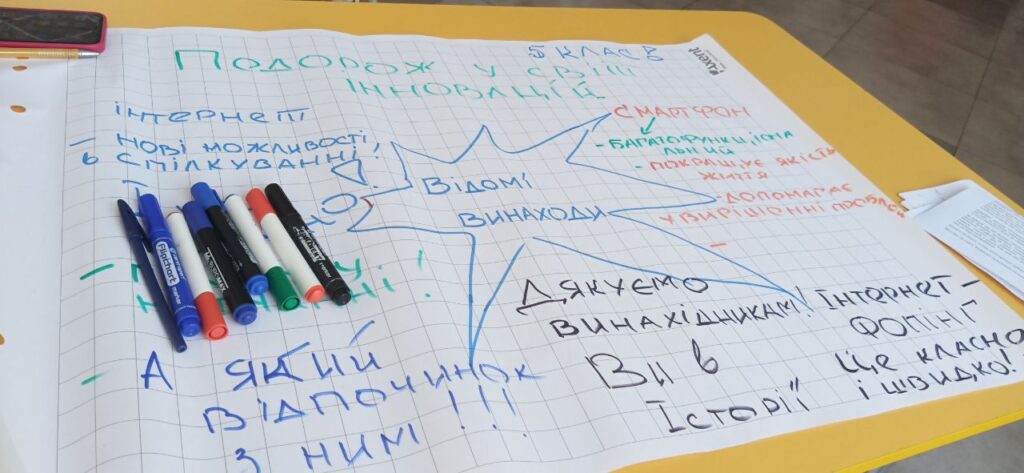 5 КЛАС В
ПОДОРОЖ У СВІТ
ІННОВАЦІЙ
axent
ІНТЕРНЕТ
- НОВІ МОЖЛИВОСТІ,
В СПІЛКУВАННІ!
- А ЯКИЙ
ВІДПОЧИНОК
З НИМ! !!!
ВІДОМІ
ВИНАХОДИ
СМАРТФОН
- БАГАТОФУНКЦІОНА
ЛЬНИЙ
- ПОКРАЩУЄ ЯКІСТЬ
ЖИТТЯ
- ДОПОМАГАЄ
У ВИРІШОННІ ПРОБЛЕМ
-
ДЯКУЄМО
ВИНАХІДНИКАМ!
ВИ В
ІСТОРІЇ
ІНТЕРНЕТ-
ФОПІНГ
ЦЕ КЛАСНО
І ШВИДКО!
Flipchart
marker